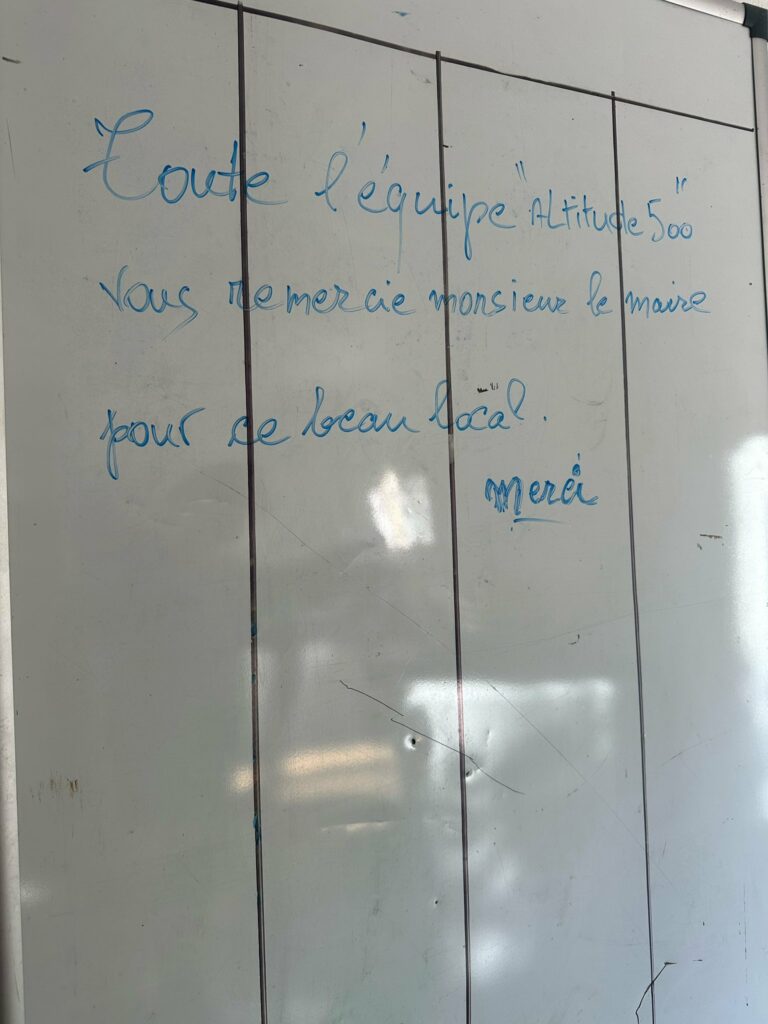 Toute l'équipe "Altitude 500"
vous remercie monsieur le maire
pour ce beau local.
merci